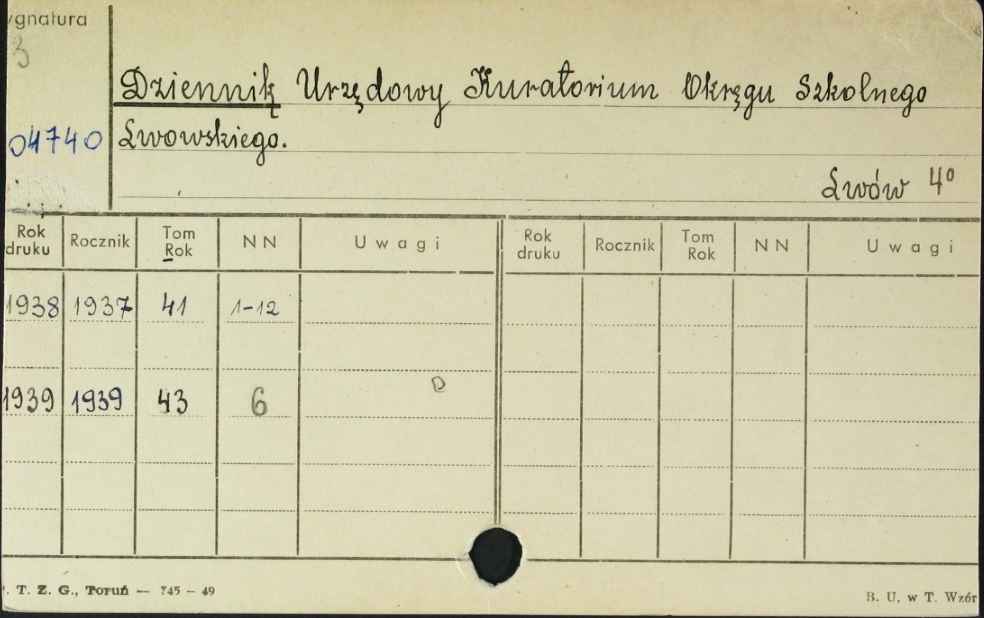 ygnatura
3
Dziennik Urzędowy Kuratorium Okręgu Szkolnego
04740 Lwowskiego.
Lwów 4°
Rok druku Rocznik Tom Rok NN Uwagi Rok druku Rocznik Tom Rok NN Uwagi
1938 1937 41 1-12
D
1939 1939 43 6
. T. Z. G., Toruń — 745 — 49 B. U. w T. Wzór